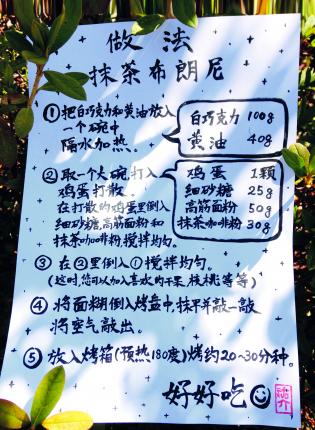 做 法
抹茶布朗尼
①把白巧克力和黄油放入
一个碗中
隔水加热。
白巧克力 100g
黄油 40g
②取一个大碗,打入
鸡蛋打散。
在打散的鸡蛋里倒入
细砂糖,高筋面粉和
抹茶咖啡粉,搅拌均匀。
鸡蛋 1颗
细砂糖 25g
高筋面粉 50g
抹茶咖啡粉 30g
③ 在②里倒入①搅拌均匀。
(这时,您可以加入喜欢的干果、核桃等等)
④ 将面糊倒入烤盘中,抹平敲一敲
将空气敲出。
⑤ 放入烤箱(预热180度)烤约20~30分种。
好好吃